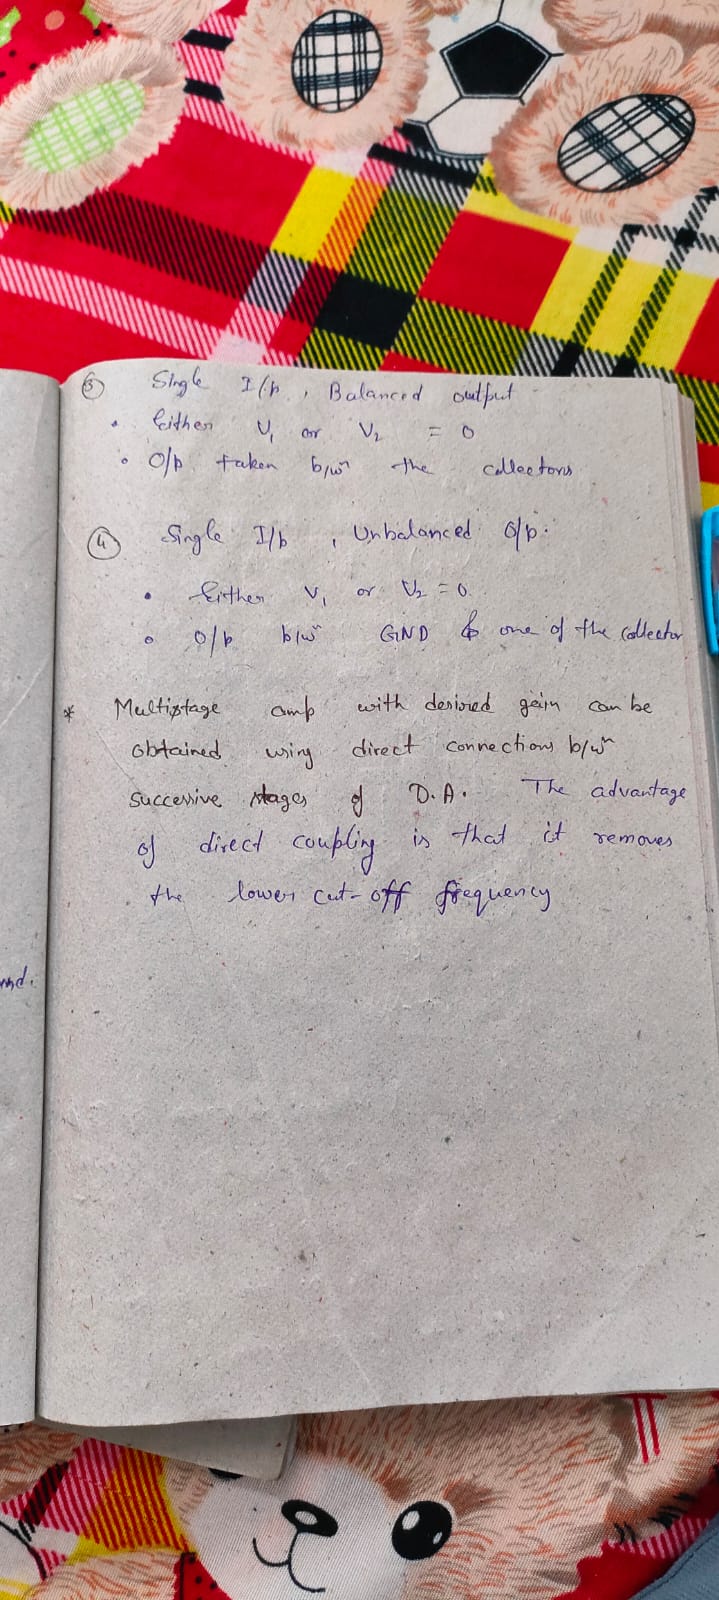 ③ Single I/p, Balanced output
• Either V₁ or V₂ = 0
• O/p taken b/wⁿ the collectors
④ Single I/p, Unbalanced O/p.
• Either V₁ or V₂ = 0
• O/p b/wⁿ GND & one of the collector
* Multistage amp with desired gain can be
obtained using direct connections b/wⁿ
successive stages of D.A. The advantage
of direct coupling is that it removes
the lower cut-off frequency
nd.